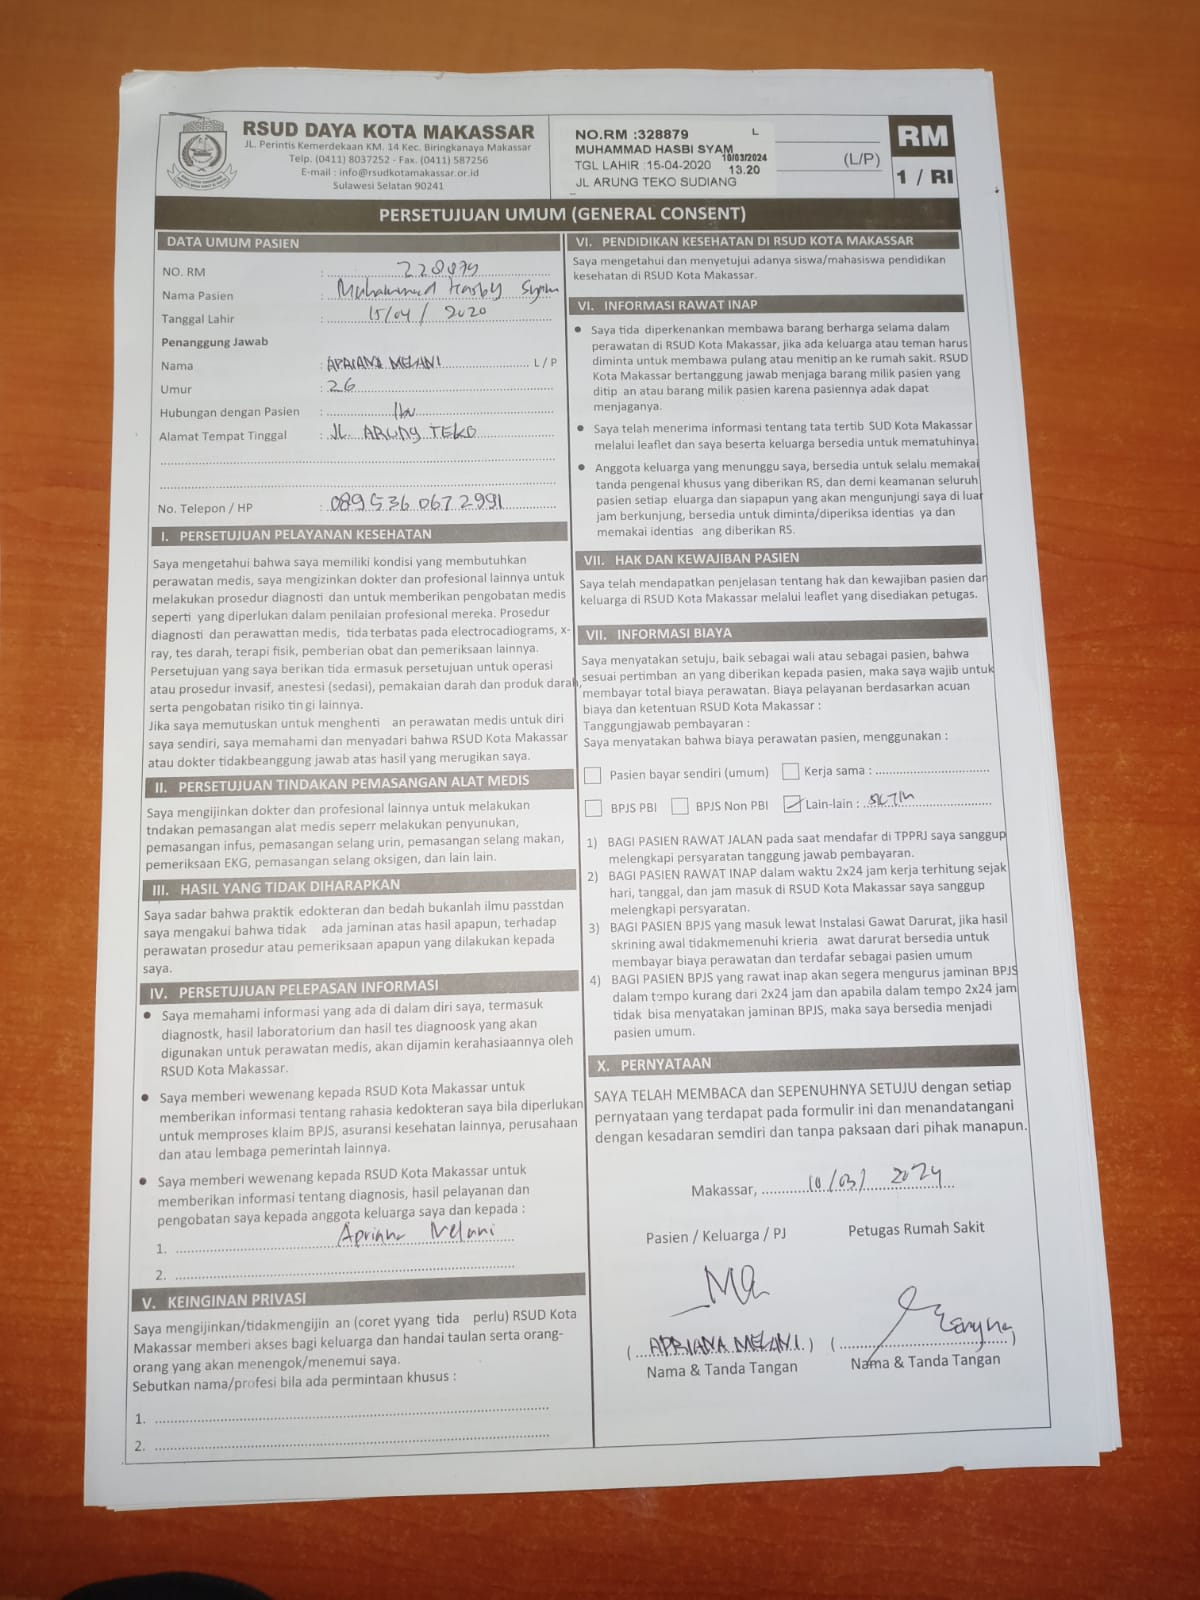 RSUD DAYA KOTA MAKASSAR
JL. Perintis Kemerdekaan KM. 14 Kec. Biringkanaya Makassar
Telp. (0411) 8037252 - Fax. (0411) 587256
E-mail : info@rsudkotamakassar.or.id
Sulawesi Selatan 90241
NO.RM :328879 L
MUHAMMAD HASBI SYAM
TGL LAHIR :15-04-2020 10/03/2024
13.20
JL ARUNG TEKO SUDIANG
(L/P)
RM
1 / RI
PERSETUJUAN UMUM (GENERAL CONSENT)
DATA UMUM PASIEN
NO. RM : 328879
Nama Pasien : Muhammad Hasby Syam
Tanggal Lahir : 15/04/2020
Penanggung Jawab
Nama : APRIANA MELANI L / P
Umur : 26
Hubungan dengan Pasien : Ibu
Alamat Tempat Tinggal : JL. ARUNG TEKO
No. Telepon / HP : 0895360672991
I. PERSETUJUAN PELAYANAN KESEHATAN
Saya mengetahui bahwa saya memiliki kondisi yang membutuhkan
perawatan medis, saya mengizinkan dokter dan profesional lainnya untuk
melakukan prosedur diagnosti dan untuk memberikan pengobatan medis
seperti yang diperlukan dalam penilaian profesional mereka. Prosedur
diagnosti dan perawattan medis, tida terbatas pada electrocadiograms, x-
ray, tes darah, terapi fisik, pemberian obat dan pemeriksaan lainnya.
Persetujuan yang saya berikan tida ermasuk persetujuan untuk operasi
atau prosedur invasif, anestesi (sedasi), pemakaian darah dan produk darah,
serta pengobatan risiko tin gi lainnya.
Jika saya memutuskan untuk menghenti an perawatan medis untuk diri
saya sendiri, saya memahami dan menyadari bahwa RSUD Kota Makassar
atau dokter tidakbeanggung jawab atas hasil yang merugikan saya.
II. PERSETUJUAN TINDAKAN PEMASANGAN ALAT MEDIS
Saya mengijinkan dokter dan profesional lainnya untuk melakukan
tndakan pemasangan alat medis seperr melakukan penyunukan,
pemasangan infus, pemasangan selang urin, pemasangan selang makan,
pemeriksaan EKG, pemasangan selang oksigen, dan lain lain.
III. HASIL YANG TIDAK DIHARAPKAN
Saya sadar bahwa praktik edokteran dan bedah bukanlah ilmu passtdan
saya mengakui bahwa tidak ada jaminan atas hasil apapun, terhadap
perawatan prosedur atau pemeriksaan apapun yang dilakukan kepada
saya.
IV. PERSETUJUAN PELEPASAN INFORMASI
• Saya memahami informasi yang ada di dalam diri saya, termasuk
diagnostk, hasil laboratorium dan hasil tes diagnoosk yang akan
digunakan untuk perawatan medis, akan dijamin kerahasiaannya oleh
RSUD Kota Makassar.
• Saya memberi wewenang kepada RSUD Kota Makassar untuk
memberikan informasi tentang rahasia kedokteran saya bila diperlukan
untuk memproses klaim BPJS, asuransi kesehatan lainnya, perusahaan
dan atau lembaga pemerintah lainnya.
• Saya memberi wewenang kepada RSUD Kota Makassar untuk
memberikan informasi tentang diagnosis, hasil pelayanan dan
pengobatan saya kepada anggota keluarga saya dan kepada :
1. Apriana Melani
2.
V. KEINGINAN PRIVASI
Saya mengijinkan/tidakmengijin an (coret yyang tida perlu) RSUD Kota
Makassar memberi akses bagi keluarga dan handai taulan serta orang-
orang yang akan menengok/menemui saya.
Sebutkan nama/profesi bila ada permintaan khusus :
1.
2.
VI. PENDIDIKAN KESEHATAN DI RSUD KOTA MAKASSAR
Saya mengetahui dan menyetujui adanya siswa/mahasiswa pendidikan
kesehatan di RSUD Kota Makassar.
VI. INFORMASI RAWAT INAP
• Saya tida diperkenankan membawa barang berharga selama dalam
perawatan di RSUD Kota Makassar, jika ada keluarga atau teman harus
diminta untuk membawa pulang atau menitip an ke rumah sakit. RSUD
Kota Makassar bertanggung jawab menjaga barang milik pasien yang
ditip an atau barang milik pasien karena pasiennya adak dapat
menjaganya.
• Saya telah menerima informasi tentang tata tertib SUD Kota Makassar
melalui leaflet dan saya beserta keluarga bersedia untuk mematuhinya.
• Anggota keluarga yang menunggu saya, bersedia untuk selalu memakai
tanda pengenal khusus yang diberikan RS, dan demi keamanan seluruh
pasien setiap eluarga dan siapapun yang akan mengunjungi saya di luar
jam berkunjung, bersedia untuk diminta/diperiksa identias ya dan
memakai identias ang diberikan RS.
VII. HAK DAN KEWAJIBAN PASIEN
Saya telah mendapatkan penjelasan tentang hak dan kewajiban pasien dan
keluarga di RSUD Kota Makassar melalui leaflet yang disediakan petugas.
VII. INFORMASI BIAYA
Saya menyatakan setuju, baik sebagai wali atau sebagai pasien, bahwa
sesuai pertimban an yang diberikan kepada pasien, maka saya wajib untuk
membayar total biaya perawatan. Biaya pelayanan berdasarkan acuan
biaya dan ketentuan RSUD Kota Makassar :
Tanggungjawab pembayaran :
Saya menyatakan bahwa biaya perawatan pasien, menggunakan :
Pasien bayar sendiri (umum) Kerja sama :
BPJS PBI BPJS Non PBI Lain-lain :
1) BAGI PASIEN RAWAT JALAN pada saat mendafar di TPPRJ saya sanggup
melengkapi persyaratan tanggung jawab pembayaran.
2) BAGI PASIEN RAWAT INAP dalam waktu 2x24 jam kerja terhitung sejak
hari, tanggal, dan jam masuk di RSUD Kota Makassar saya sanggup
melengkapi persyaratan.
3) BAGI PASIEN BPJS yang masuk lewat Instalasi Gawat Darurat, jika hasil
skrining awal tidakmemenuhi krieria awat darurat bersedia untuk
membayar biaya perawatan dan terdafar sebagai pasien umum
4) BAGI PASIEN BPJS yang rawat inap akan segera mengurus jaminan BPJS
dalam tempo kurang dari 2x24 jam dan apabila dalam tempo 2x24 jam
tidak bisa menyatakan jaminan BPJS, maka saya bersedia menjadi
pasien umum.
X. PERNYATAAN
SAYA TELAH MEMBACA dan SEPENUHNYA SETUJU dengan setiap
pernyataan yang terdapat pada formulir ini dan menandatangani
dengan kesadaran semdiri dan tanpa paksaan dari pihak manapun.
Makassar, 10/03/2024
Pasien / Keluarga / PJ Petugas Rumah Sakit
(APRIANA MELANI.) ( )
Nama & Tanda Tangan Nama & Tanda Tangan